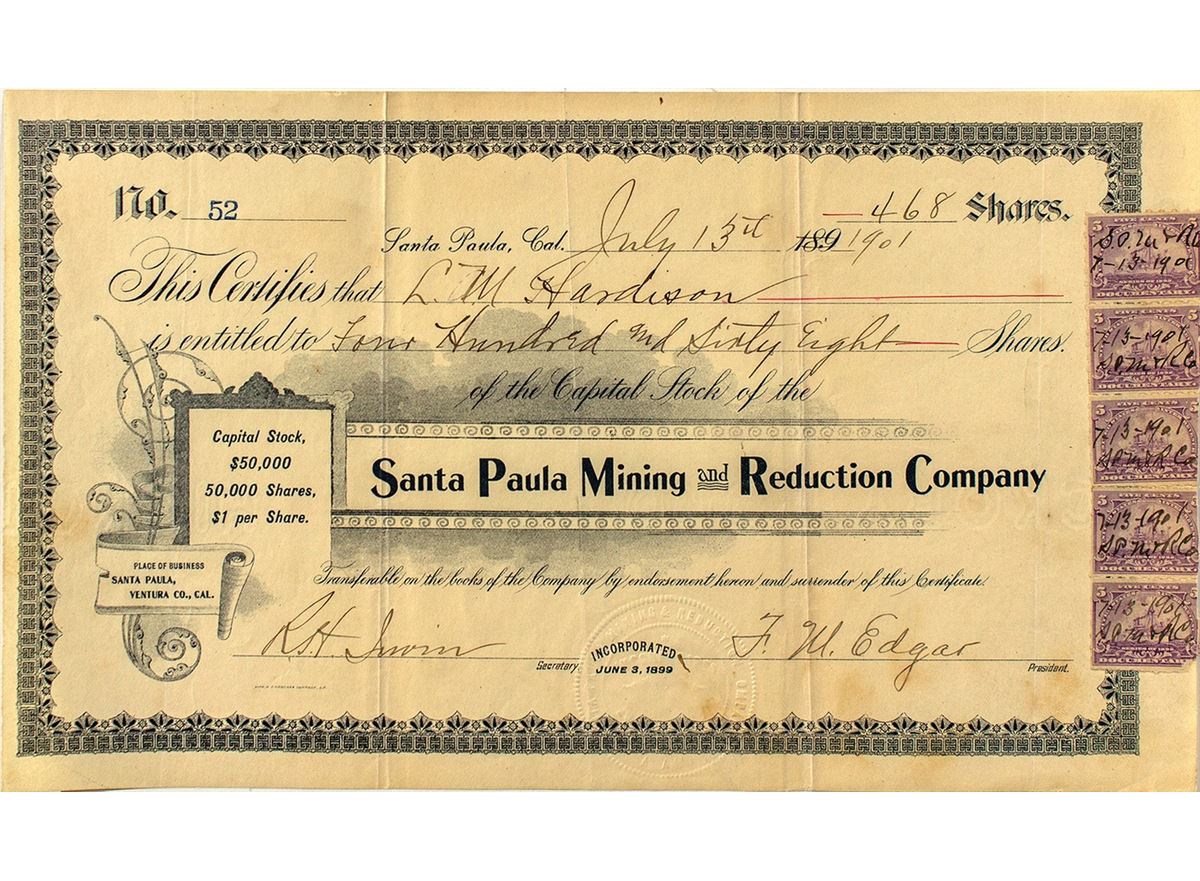 No. 52
468 Shares.
Santa Paula, Cal. July 13th 189 1901
This Certifies that L. M Hardison
is entitled to Four Hundred and Sixty Eight Shares.
of the Capital Stock of the
Capital Stock,
$50,000
50,000 Shares,
$1 per Share.
Santa Paula Mining and Reduction Company
PLACE OF BUSINESS
SANTA PAULA,
VENTURA CO., CAL.
Transferable on the books of the Company by endorsement hereon and surrender of this Certificate.
R.H. Irwin Secretary.
INCORPORATED
JUNE 3, 1899
F. M. Edgar President.
5 FIVE CENTS 5
7-13-1901
DOCUMENTARY
5 FIVE CENTS
7-13-1901
S.P. M & R Co
DOCUMENTARY
5 FIVE CENTS
7-13-1901
S.P. M & R Co
DOCUMENTARY
5 FIVE CENTS
7-13-1901
S.P. M & R Co
DOCUMENTARY
5 FIVE CENTS
7-13-1901
S.P. M & R Co
DOCUMENTARY